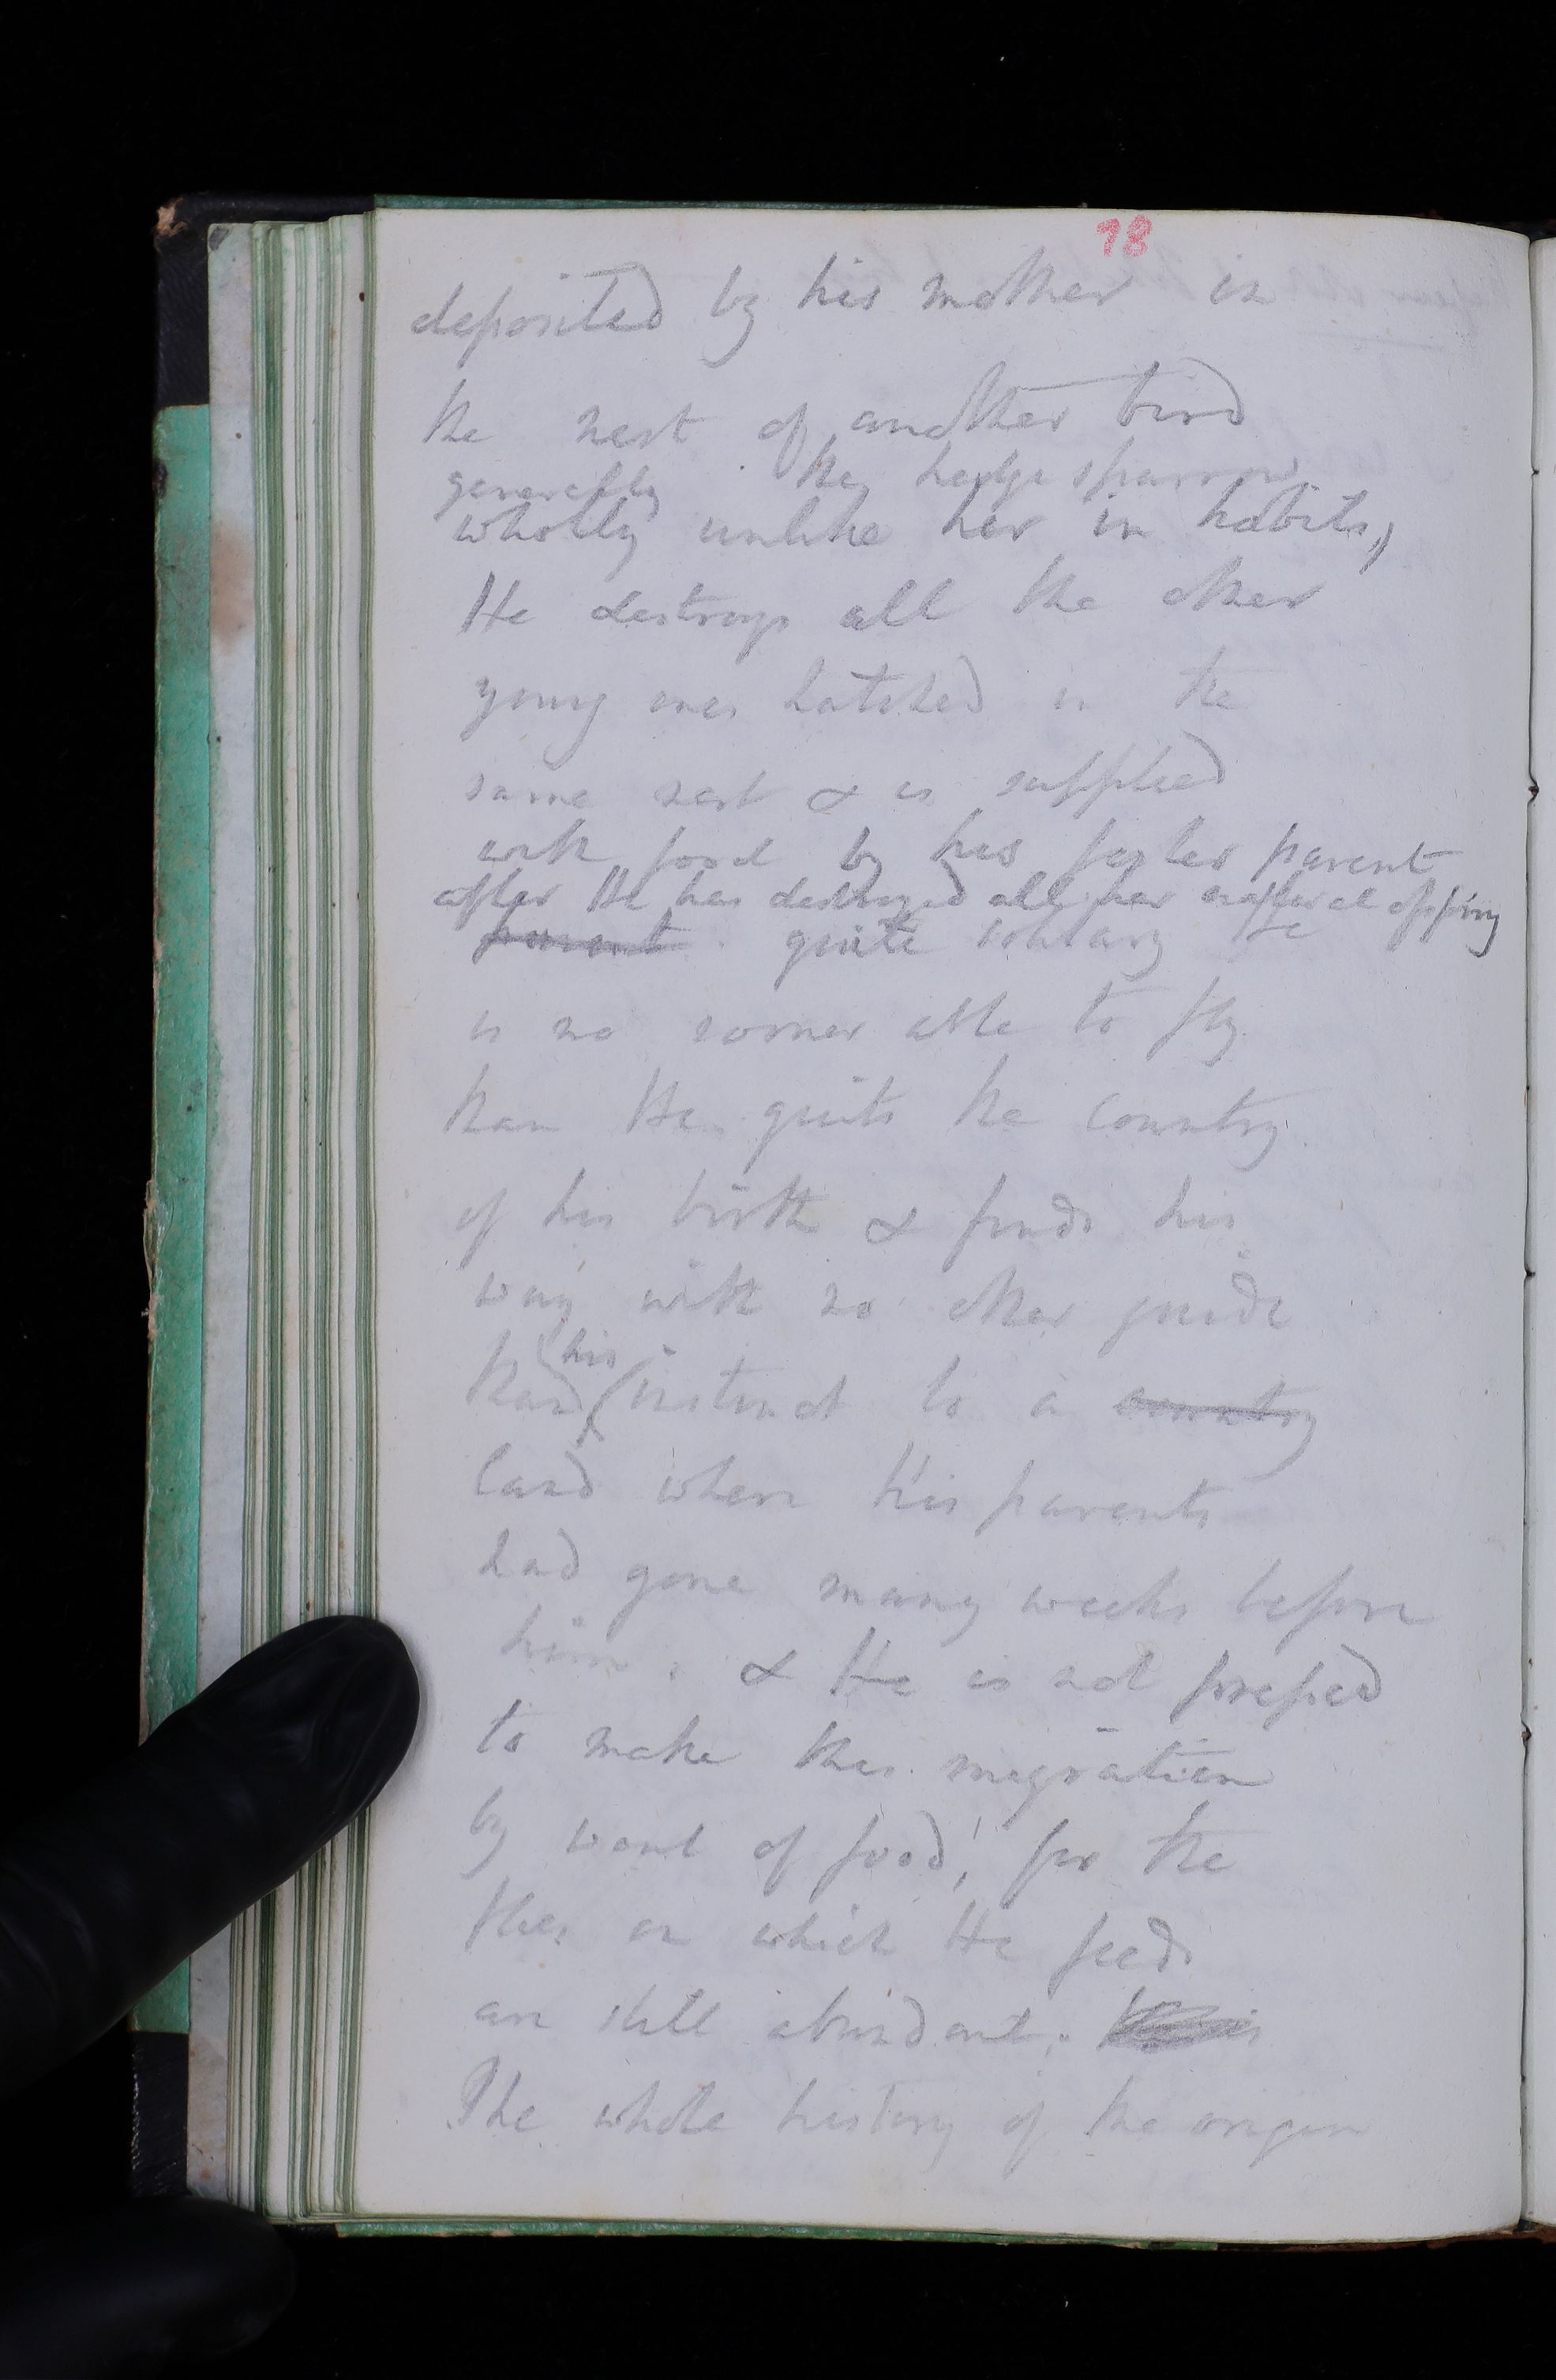 78
deposited by his mother in
the nest of another bird
generally the hedge sparrow
wholly unlike her in habits,
He destroys all the other
young ones hatched in the
same nest & is supplied
with food by his foster parent
after He has destroyed all her natural offspring
parent. quite contrary He
is no sooner able to fly
than He quits the country
of his birth & finds his
way with no other guide
his
than instinct to a country
land where his parents
had gone many weeks before
him. & He is not pressed
to make this migration
by want of food; for the
flies on which He feeds
are still abundant.
The whole history of the origin